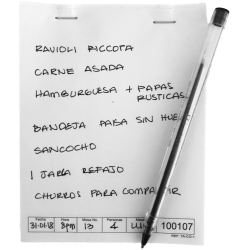 RAVIOLI RICCOTA
CARNE ASADA
HAMBURGUESA + PAPAS
RUSTICAS.
BANDEJA PAISA SIN HUEVO
SANCOCHO
1 JARRA REFAJO
CHURROS PARA COMPARTIR
Fecha Hora Mesa No Personas Mesero
31-01-18 8pm 13 4 100107